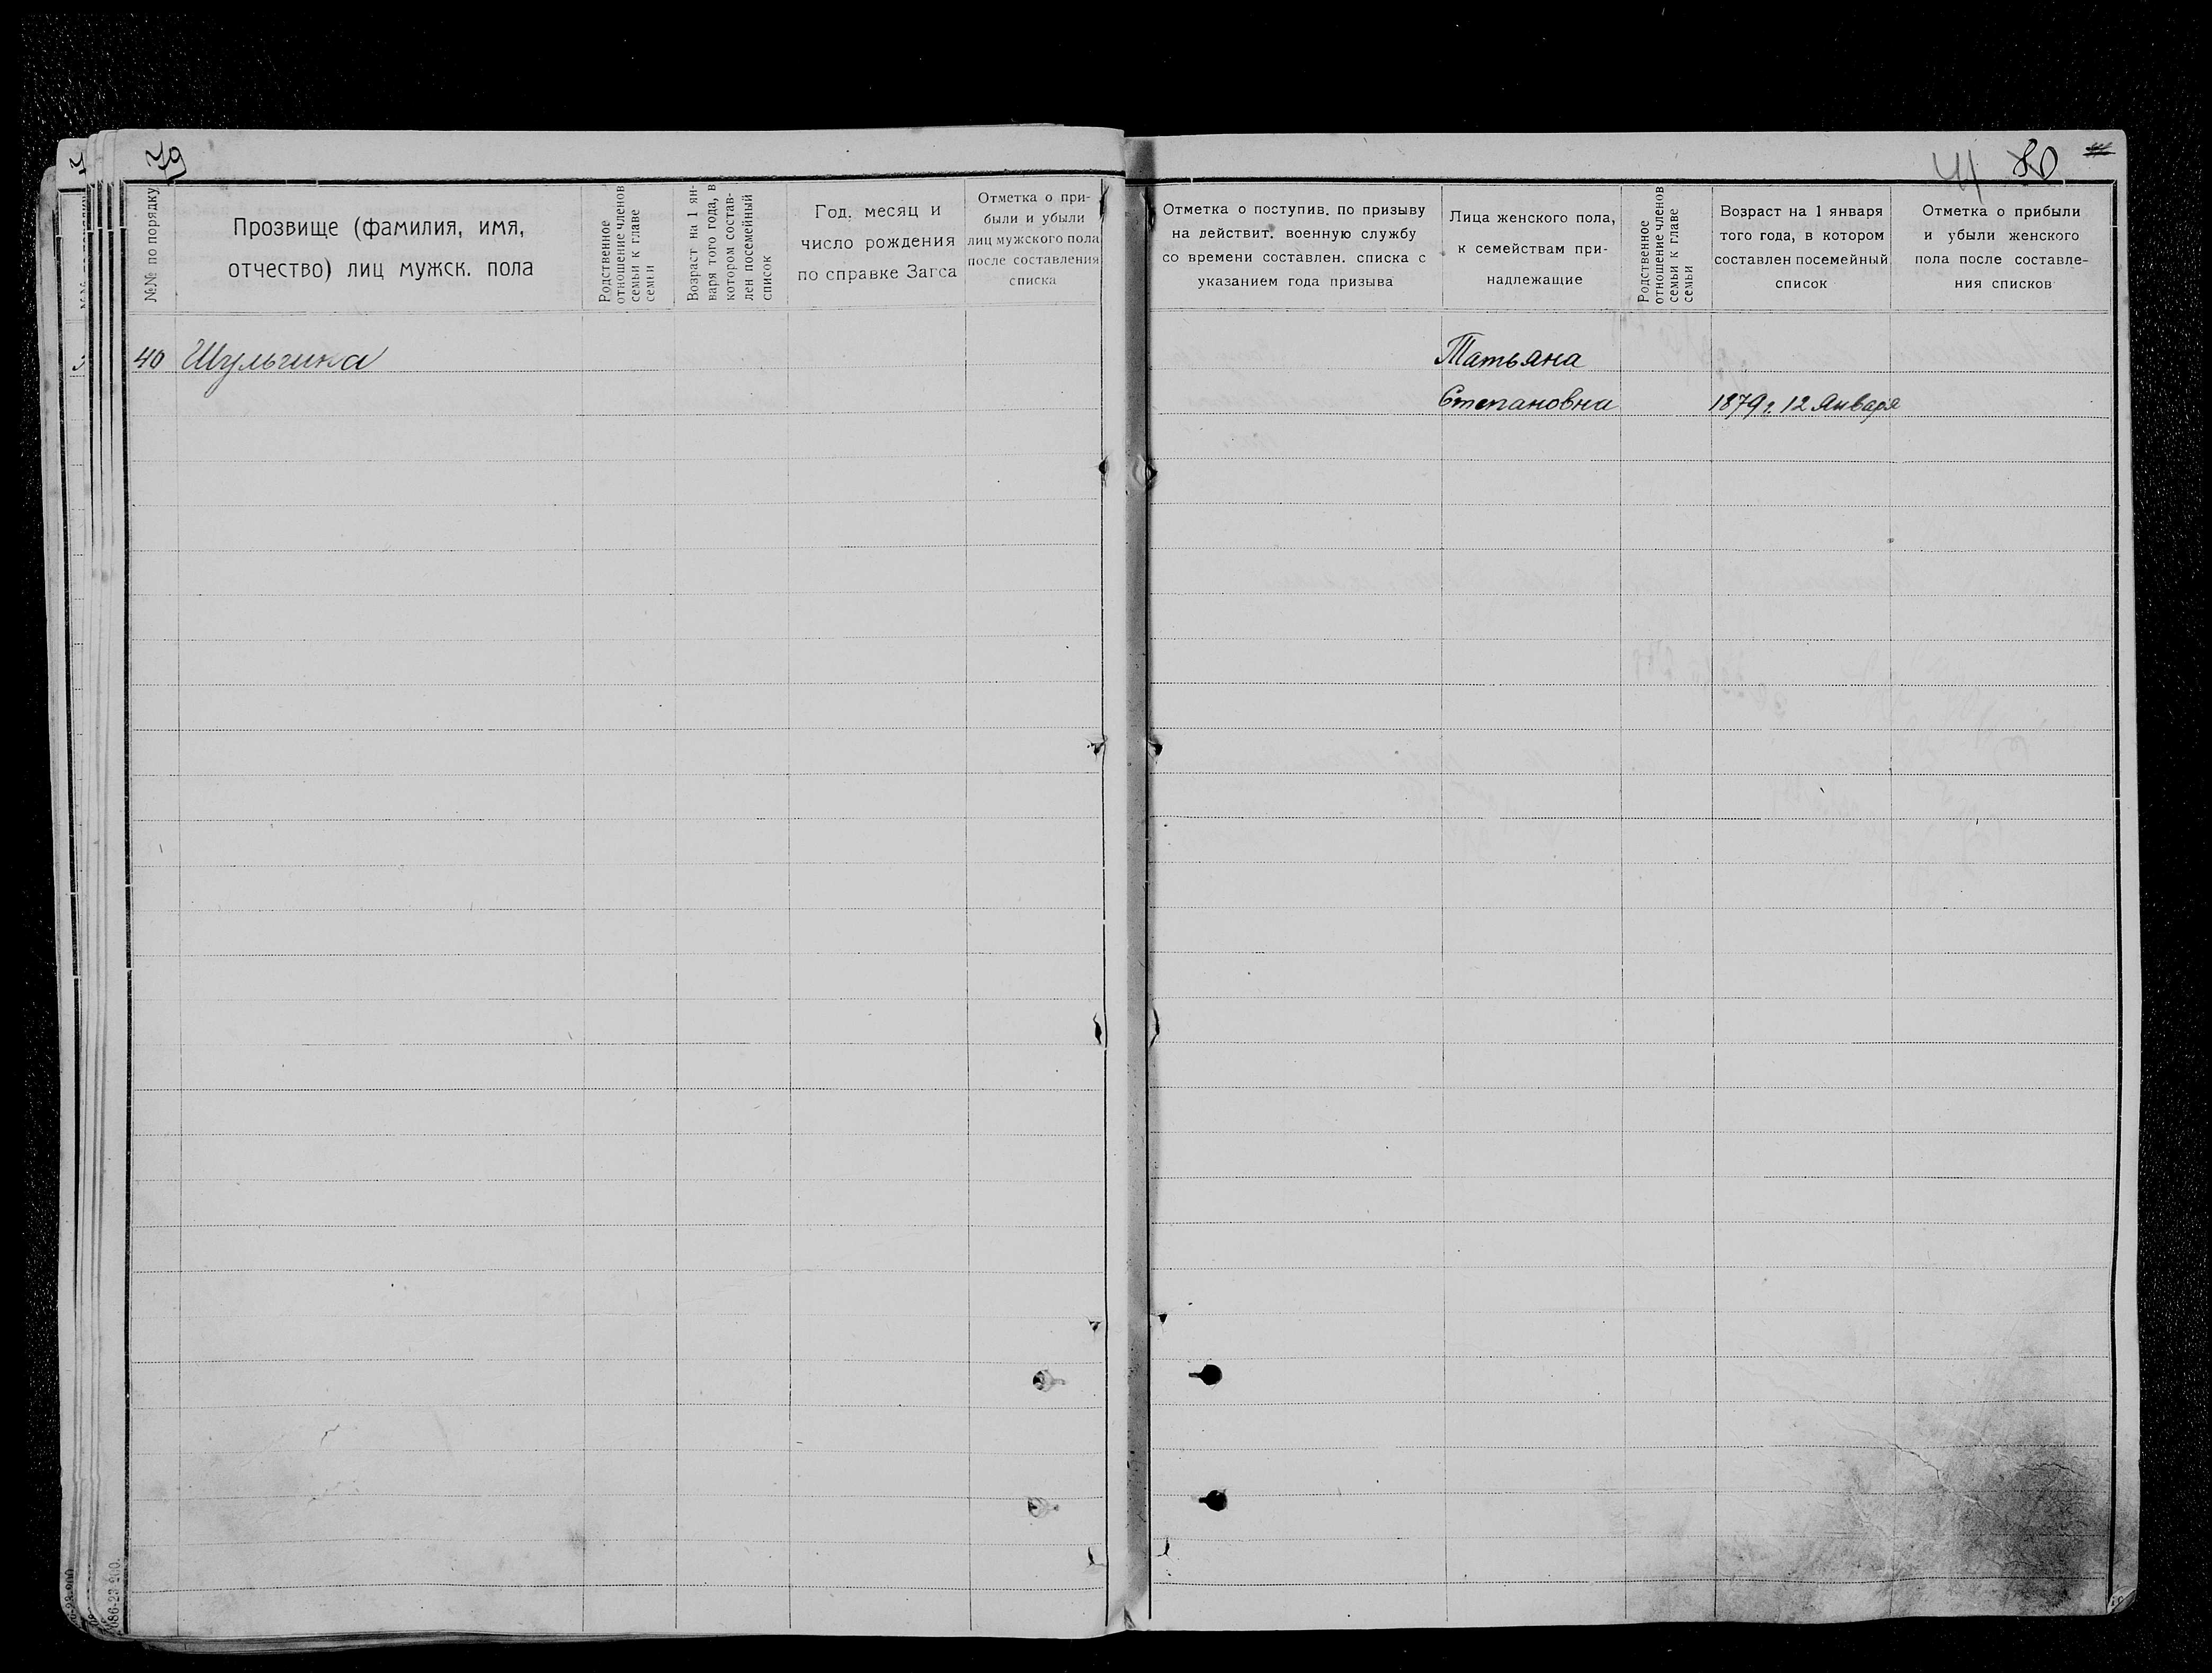 79
№№ по порядку
Прозвище (фамилия, имя,
отчество) лиц мужск. пола
Родственное
отношение членов
семьи к главе
семьи
Возраст на 1 ян-
варя того года, в
котором состав-
лен посемейный
список
Год, месяц и
число рождения
по справке Загса
Отметка о при-
были и убыли
лиц мужского пола
после составления
списка
40 Шульгина
41 80
Отметка о поступив. по призыву
на действит. военную службу
со времени составлен. списка с
указанием года призыва
Лица женского пола,
к семействам при-
надлежащие
Родственное
отношение членов
семьи к главе
семьи
Возраст на 1 января
того года, в котором
составлен посемейный
список
Отметка о прибыли
и убыли женского
пола после составле-
ния списков
Татьяна
Степановна 1879 г. 12 Января